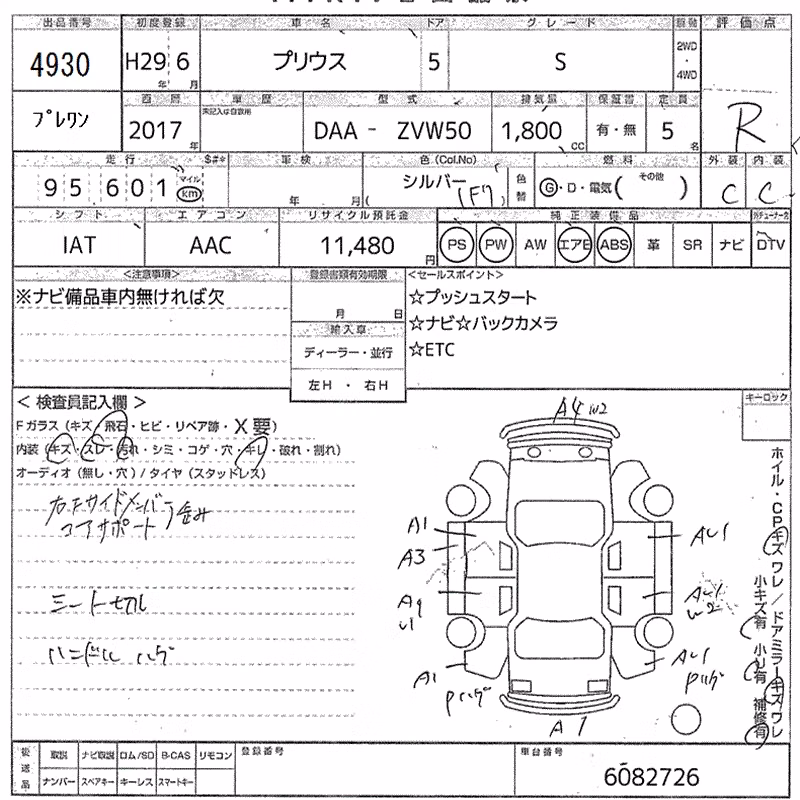 出品番号 初度登録 車名 ドア グレード 駆動 評価点
4930 H29 6 プリウス 5 S 2WD・4WD R
年 月
プレワン 西暦 車歴 型式 排気量 保証書 定員
未記入は自家用
2017 年 DAA - ZVW50 1,800 CC 有・無 5 名
走行 $#* 車検 色(Col.No) 燃料 外装 内装
95 601 マイル km 年 月 シルバー (1F7) 色替 G・D・電気( その他 ) C C
シフト エアコン リサイクル預託金 純正装備品
IAT AAC 11,480 円 PS PW AW エアB ABS 革 SR ナビ DTV
<注意事項> 登録書類有効期限 <セールスポイント>
※ナビ備品車内無ければ欠 月 日 ☆プッシュスタート
輸入車 ☆ナビ☆バックカメラ
ディーラー・並行 ☆ETC
左H ・ 右H
キーロック
< 検査員記入欄 >
Fガラス (キズ・飛石・ヒビ・リペア跡・X要)
内装 (キズ・スレ・汚れ・シミ・コゲ・穴・キレ・破れ・割れ)
オーディオ (無し・穴) / タイヤ (スタッドレス)
右Fサイドメンバー
コアサポート 歪み
シート切レ
ハンドル ハゲ
A4 W2
A1
A3
AU1
A1
Pハゲ
AU1
Pハゲ
A1
ホイル・CPキズ ワレ / ドアミラーキズ ワレ
小キズ有 小U有 補修有
後送品 取説 ナビ取説 ロム/SD B-CAS リモコン 登録番号 車台番号
ナンバー スペアキー キーレス スマートキー 6082726